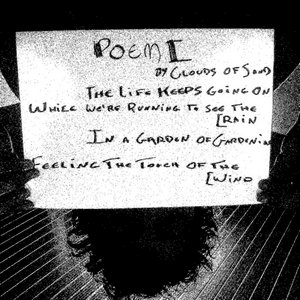 POEM I
BY CLOUDS OF SAND
THE LIFE KEEPS GOING ON
WHILE WE'RE RUNNING TO SEE THE
[RAIN
IN A GARDEN OF GARDENIN
FEELING THE TOUCH OF THE
[WIND